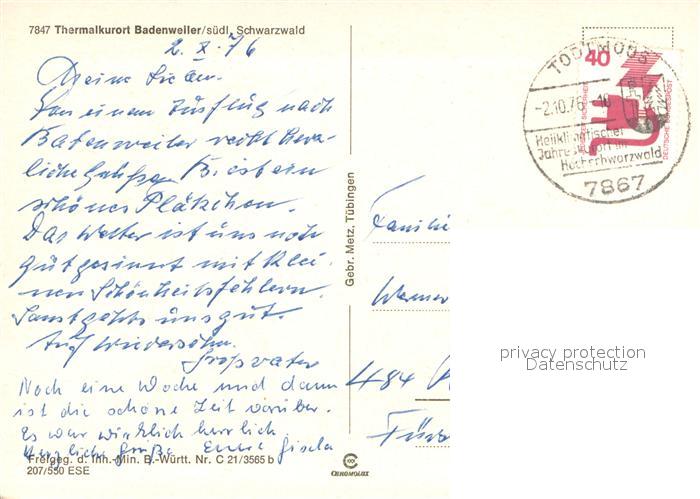 7847 Thermalkurort Badenweiler/südl. Schwarzwald
2. X. 76
Meine Lieben.
Von einem Ausflug nach
Badenweiler recht herz-
liche Grüße. Ein
schönes Plätzchen.
Das Wetter ist uns noch
gutgesinnt mit klei-
nen Schönheitsfehlern.
Sonst gehts uns gut.
Auf Wiedersehn.
Großvater
Noch eine Woche und dann
ist die schöne Zeit vorüber.
Es war wirklich herrlich
Herzliche Grüße Eure Gisela
Freigeg. d. Inn.-Min. B.-Württ. Nr. C 21/3565 b
207/550 ESE
Gebr. Metz, Tübingen
CHROMOLUX
TODTMOOS
-2.10.76
Heilklimatischer
Jahreskurort im
Hochschwarzwald
7867
40
DEUTSCHE BUNDESPOST
Familie
Werner
484
privacy protection
Datenschutz